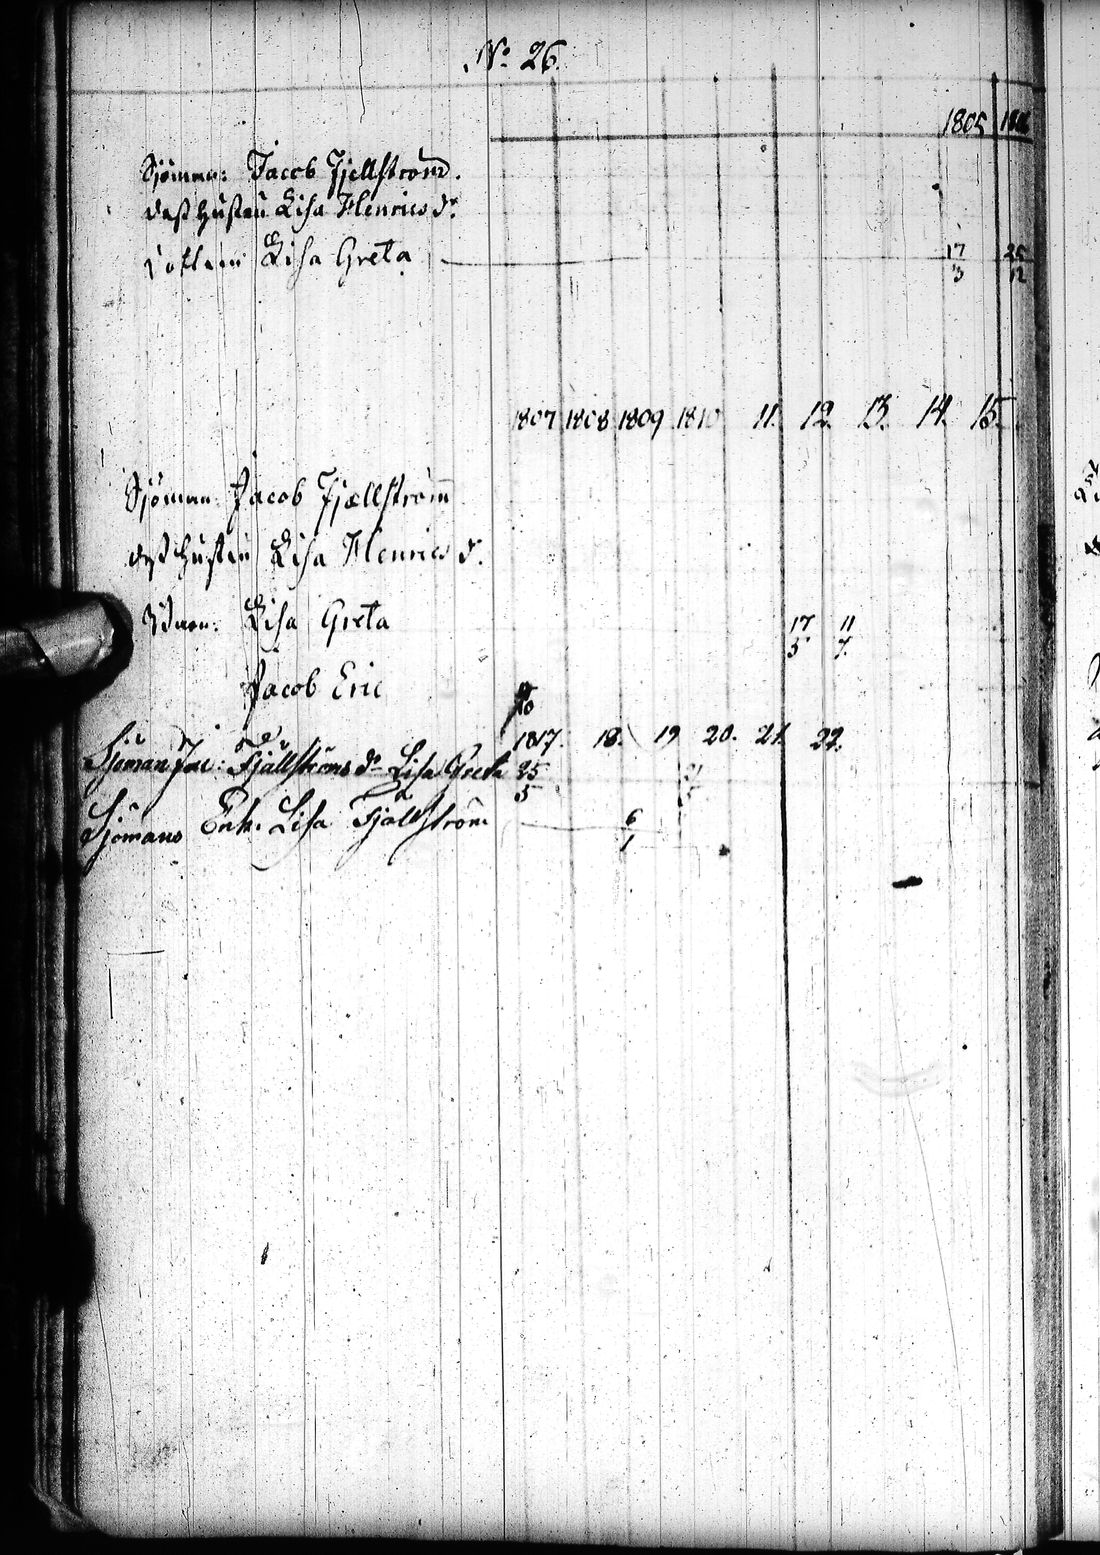 No: 26.
1805
Sjöman: Jacob Fjellström.
dess hustru Lisa Henricsdr.
Dottern Lisa Greta 17 25
3 12
1807 1808 1809 1810 11. 12. 13. 14. 15.
Sjöman: Jacob Fjællström
dess hustru Lisa Henricsdr.
Barn: Lisa Greta 17 11
5 7.
Jacob Eric
1817. 18. 19 20. 21. 22.
Sjöman Jac: Fjällströms dr Lisa Greta 25
5
Sjömans Enk. Lisa Fjällström 6
1